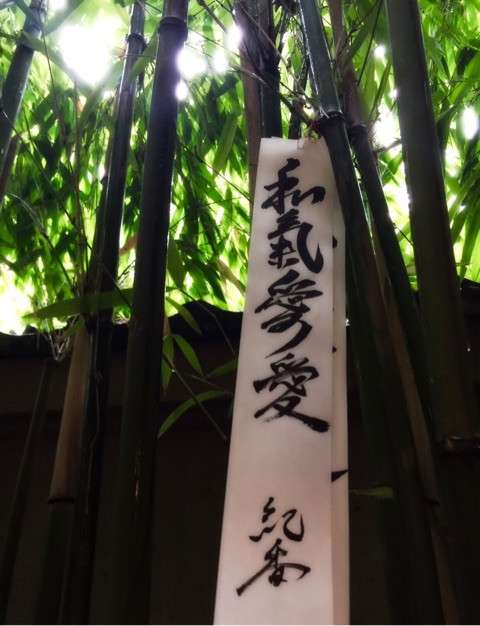 和氣愛愛
紀香